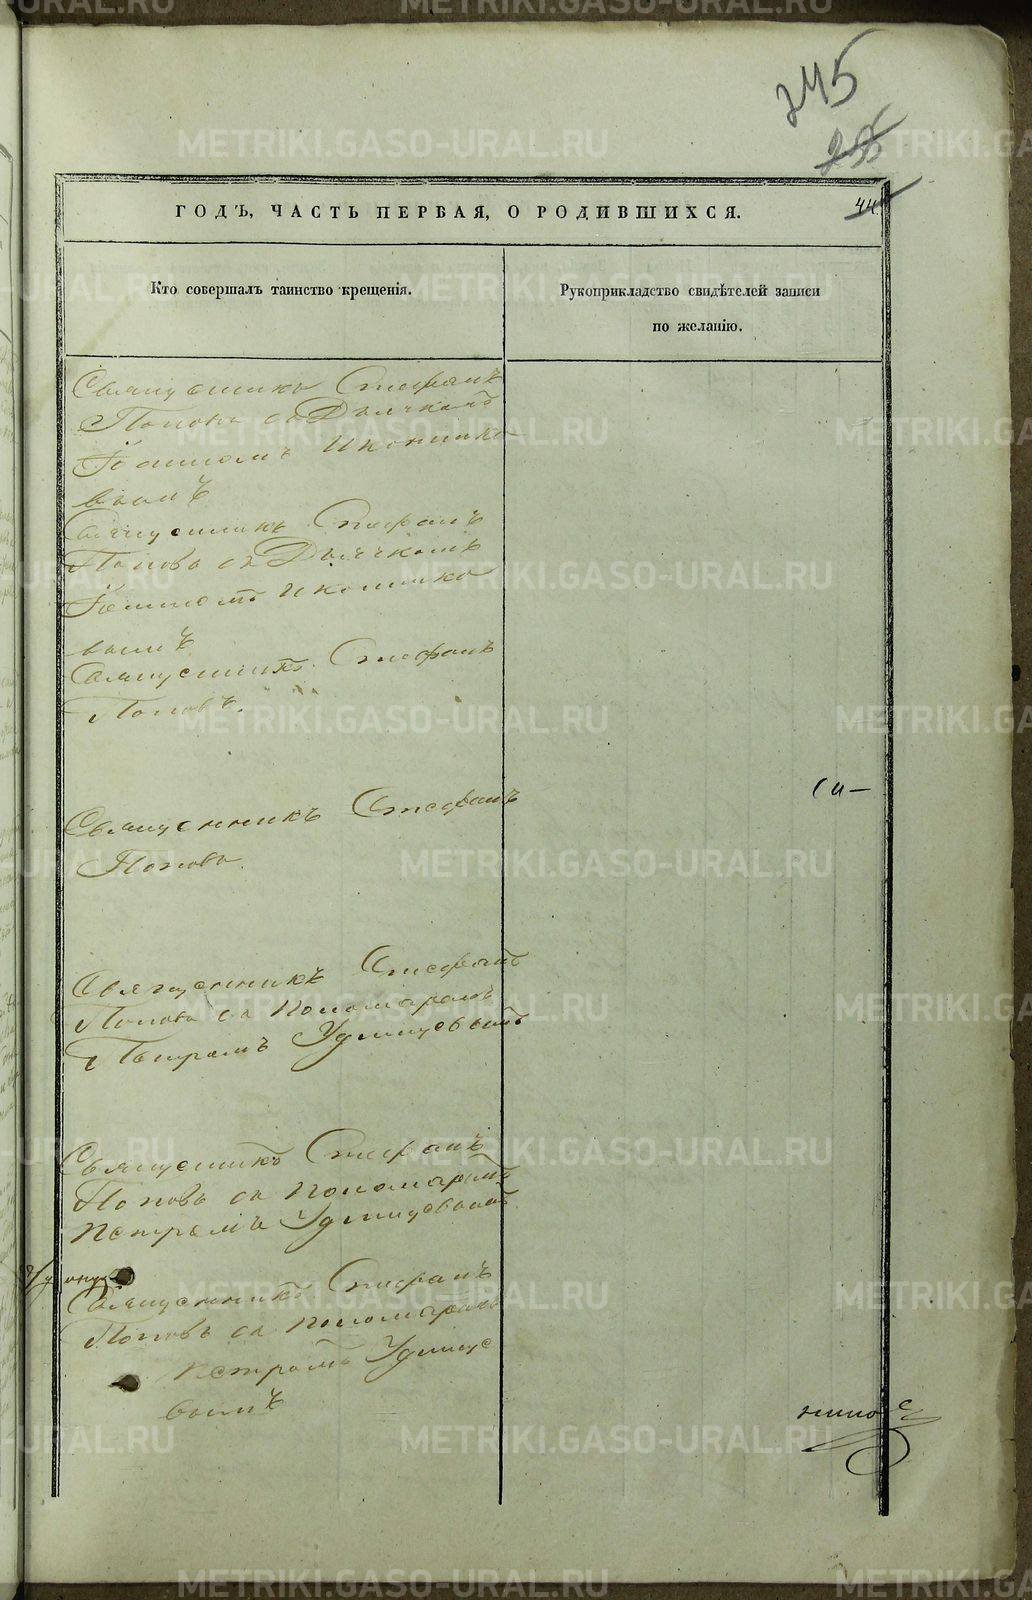 245
255
44
ГОДЪ, ЧАСТЬ ПЕРВАЯ, О РОДИВШИХСЯ.
Кто совершалъ таинство крещенія.
Рукоприкладство свидѣтелей записи
по желанію.
Священникъ Стефанъ
Поповъ съ Дьячкомъ
Іоанномъ Иконнико
вымъ
Священникъ Стефанъ
Поповъ съ Дьячкомъ
Іоанномъ Иконнико
вымъ
Священникъ Стефанъ
Поповъ.
Священникъ Стефанъ
Поповъ.
Священникъ Стефанъ
Поповъ съ Пономаремъ
Петромъ Удинцовымъ
Священникъ Стефанъ
Поповъ съ пономаремъ
Петромъ Удинцовымъ
Священникъ Стефанъ
Поповъ съ пономаремъ
Петромъ Удинцо
вымъ
METRIKI.GASO-URAL.RU